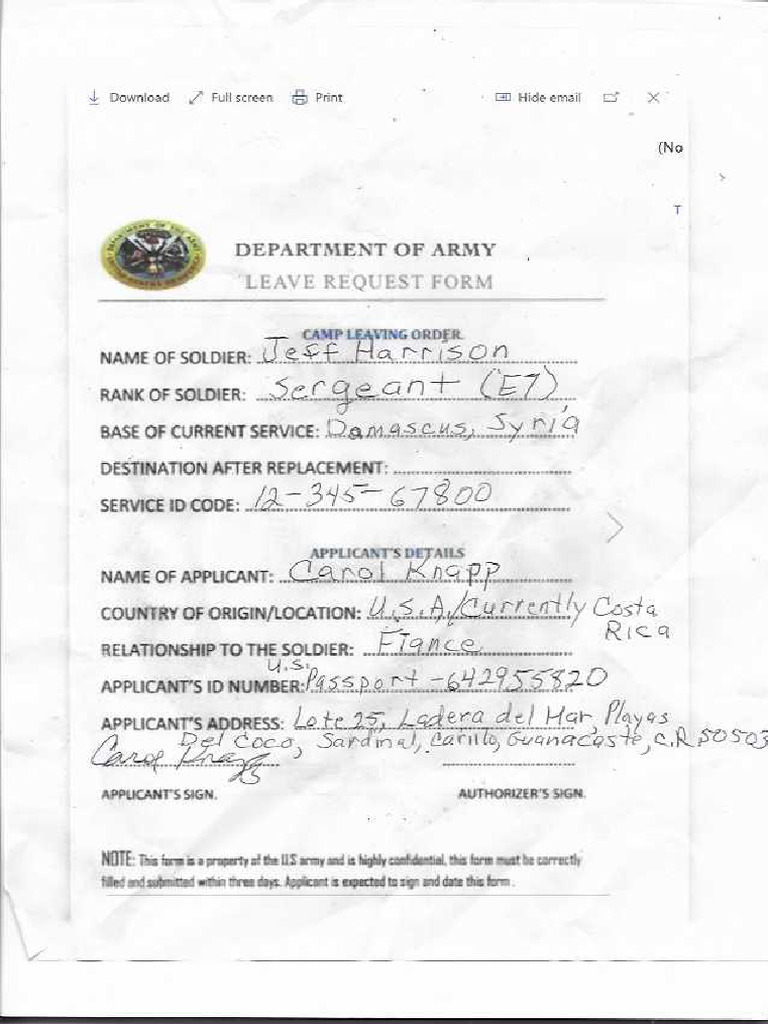 Download Full screen Print Hide email
(No
T
DEPARTMENT OF ARMY
LEAVE REQUEST FORM
CAMP LEAVING ORDER
NAME OF SOLDIER: Jeff Harrison
RANK OF SOLDIER: Sergeant (E7)
BASE OF CURRENT SERVICE: Damascus, Syria
DESTINATION AFTER REPLACEMENT:
SERVICE ID CODE: 12-345-67800
APPLICANT'S DETAILS
NAME OF APPLICANT: Carol Knapp
COUNTRY OF ORIGIN/LOCATION: U.S.A./Currently Costa
Rica
RELATIONSHIP TO THE SOLDIER: Fiance
U.S.
APPLICANT'S ID NUMBER: Passport - 642955820
APPLICANT'S ADDRESS: Lote 25, Ladera del Mar, Playas
Del Coco, Sardinal, Carillo, Guanacaste, C.R 50503
Carol Knapp
APPLICANT'S SIGN. AUTHORIZER'S SIGN.
NOTE: This form is a property of the U.S army and is highly confidential, this form must be correctly
filled and submitted within three days. Applicant is expected to sign and date this form .